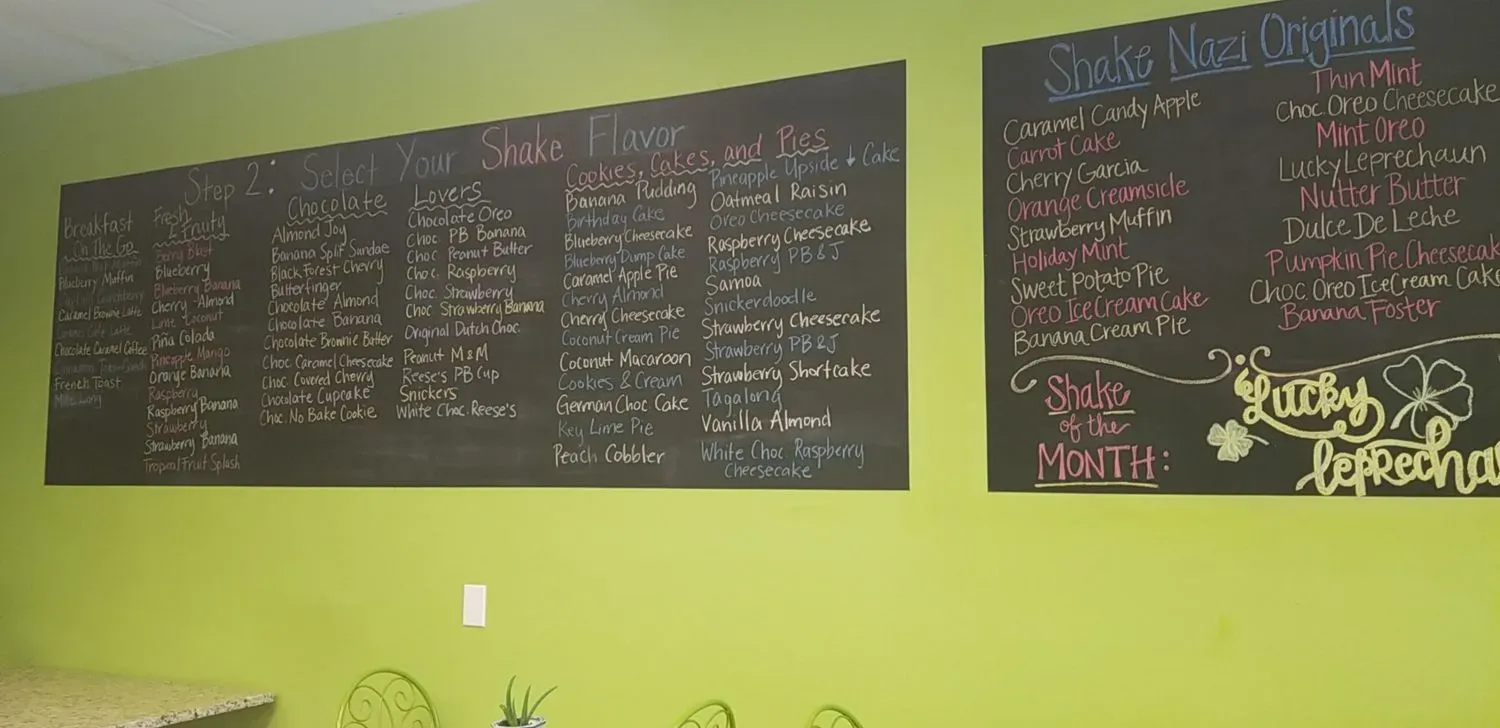 Step 2: Select Your Shake Flavor
Breakfast
On The Go
Blueberry Muffin
Caramel Brownie Latte
Chocolate Caramel Coffee
French Toast
Fresh
& Fruity
Berry Blast
Blueberry
Blueberry Banana
Cherry-Almond
Lime Coconut
Piña Colada
Pineapple Mango
Orange Banana
Raspberry
Raspberry Banana
Strawberry
Strawberry Banana
Tropical Fruit Splash
Chocolate
Almond Joy
Banana Split Sundae
Black Forest Cherry
Butterfinger
Chocolate Almond
Chocolate Banana
Chocolate Brownie Batter
Choc. Caramel Cheesecake
Choc. Covered Cherry
Chocolate Cupcake
Choc. No Bake Cookie
Lovers
Chocolate Oreo
Choc. PB Banana
Choc. Peanut Butter
Choc. Raspberry
Choc. Strawberry
Choc Strawberry Banana
Original Dutch Choc.
Peanut M&M
Reese's PB Cup
Snickers
White Choc. Reese's
Cookies, Cakes, and Pies
Banana Pudding
Birthday Cake
Blueberry Cheesecake
Blueberry Dump Cake
Caramel Apple Pie
Cherry Almond
Cherry Cheesecake
Coconut Cream Pie
Coconut Macaroon
Cookies & Cream
German Choc Cake
Key Lime Pie
Peach Cobbler
Pineapple Upside ↓ Cake
Oatmeal Raisin
Oreo Cheesecake
Raspberry Cheesecake
Raspberry PB&J
Samoa
Snickerdoodle
Strawberry Cheesecake
Strawberry PB&J
Strawberry Shortcake
Tagalong
Vanilla Almond
White Choc. Raspberry
Cheesecake
Shake Nazi Originals
Caramel Candy Apple
Carrot Cake
Cherry Garcia
Orange Creamsicle
Strawberry Muffin
Holiday Mint
Sweet Potato Pie
Oreo IceCream Cake
Banana Cream Pie
Thin Mint
Choc. Oreo Cheesecake
Mint Oreo
Lucky Leprechaun
Nutter Butter
Dulce De Leche
Pumpkin Pie Cheesecak
Choc. Oreo IceCream Cake
Banana Foster
Shake
of the
MONTH:
Lucky
leprecha